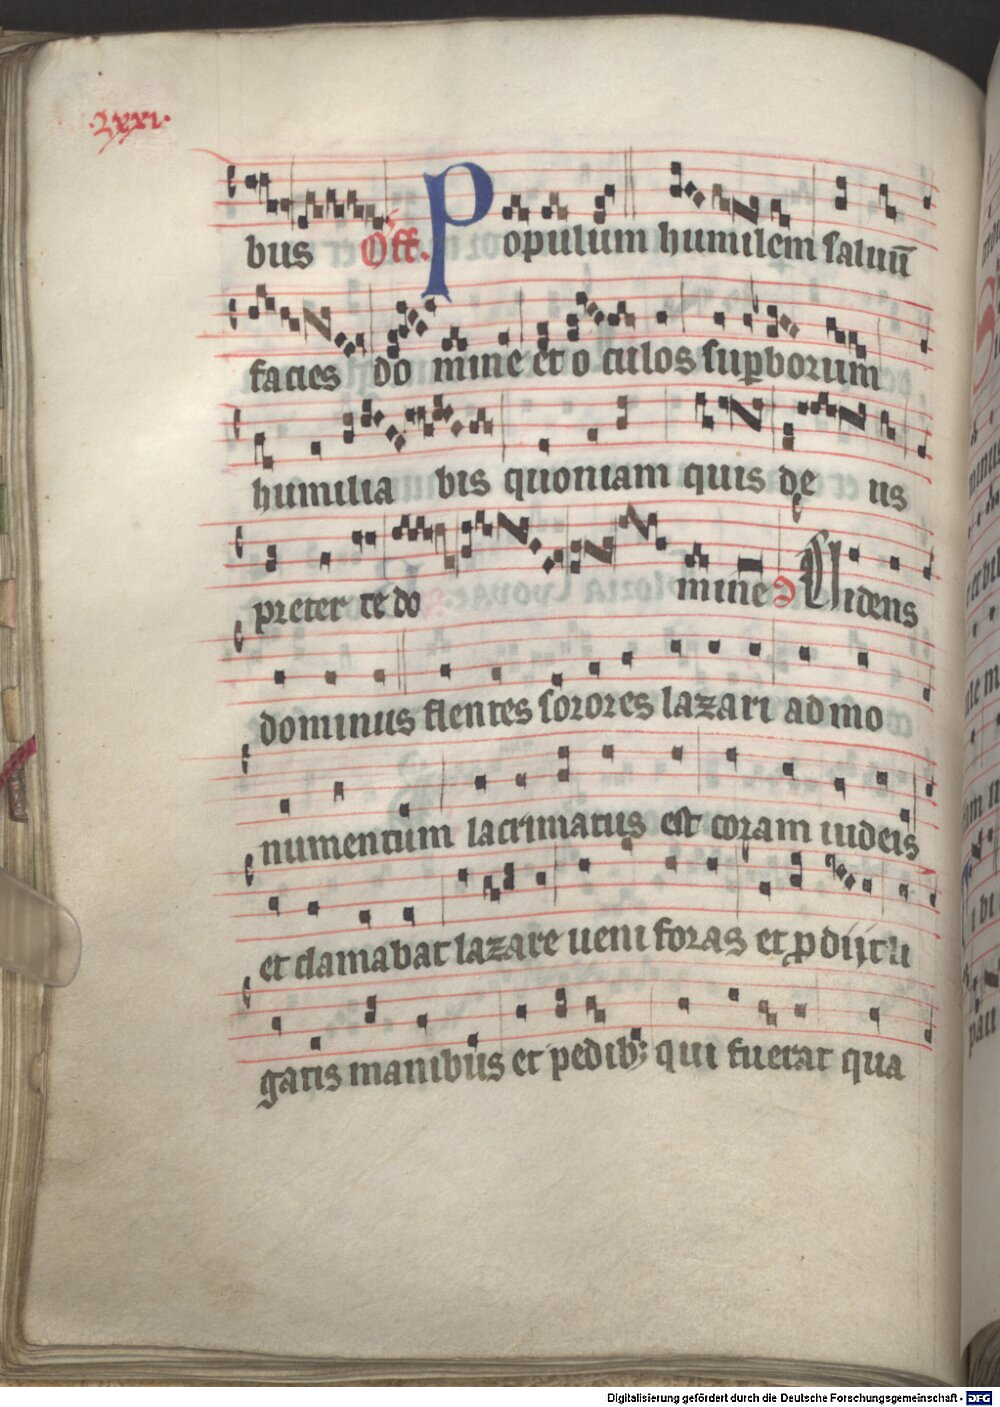 ·Lxxi·
bus Off. Populum humilem saluū
facies do mine et o culos suꝑborum
humilia bis quoniam quis de us
preter te do mine Co Uidens
dominus flentes sorores lazari ad mo
numentum lacrimatus est coram iudeis
et clamabat lazare ueni foras et ꝓdijt li
gatis manibus et pedibꝫ qui fuerat qua
Digitalisierung gefördert durch die Deutsche Forschungsgemeinschaft - DFG